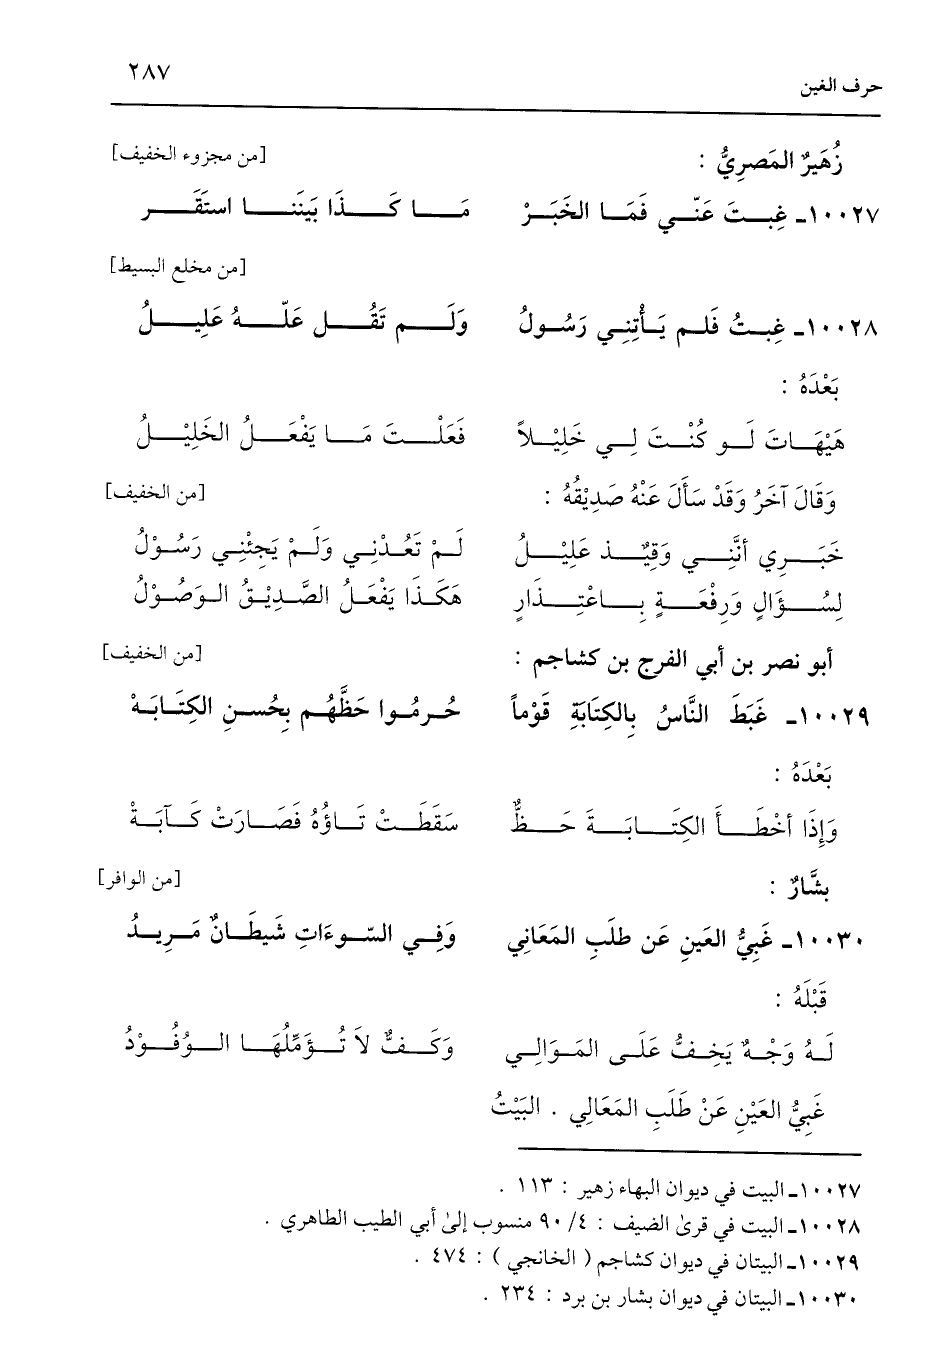 حرف الغين ٢٨٧
زُهَيرٌ المَصرِيُّ : [من مجزوء الخفيف]
١٠٠٢٧ـ غِبتَ عَنّي فَمَا الخَبَرْ مَا كَذَا بَينَنا استَقَر
[من مخلع البسيط]
١٠٠٢٨ـ غِبتُ فَلم يَأْتِنِي رَسُولُ وَلَم تَقُل عَلّهُ عَلِيلُ
بَعْدَهُ :
هَيْهَاتَ لَو كُنْتَ لِي خَلِيْلاً فَعَلْتَ مَا يَفْعَلُ الخَلِيْلُ
وَقَالَ آخَرُ وَقَدْ سَأَلَ عَنْهُ صَدِيْقُهُ : [من الخفيف]
خَبَرِي أنَّنِي وَقِيْذٌ عَلِيْلُ لَمْ تَعُدْنِي وَلَمْ يَجِئْنِي رَسُوْلُ
لِسُؤَالٍ وَرِفْعَةٍ بِاعْتِذَارٍ هَكَذَا يَفْعَلُ الصَّدِيْقُ الوَصُوْلُ
أبو نصر بن أبي الفرج بن كشاجم : [من الخفيف]
١٠٠٢٩ـ غَبَطَ النَّاسُ بِالكِتَابَةِ قَوْماً حُرمُوا حَظَّهُم بِحُسنِ الكِتَابَهْ
بَعْدَهُ :
وَإِذَا أخْطَأَ الكِتَابَةَ حَظٌّ سَقَطَتْ تَاؤُهُ فَصَارَتْ كَآبَةْ
بشَّارٌ : [من الوافر]
١٠٠٣٠ـ غَبِيُّ العَينِ عَن طلَبِ المَعَاني وَفِي السّوءَاتِ شَيطَانٌ مَرِيدُ
قَبْلَهُ :
لَهُ وَجْهٌ يَخِفُّ عَلَى المَوَالِي وَكَفٌّ لاَ تُؤَمِّلُهَا الوُفُوْدُ
غَبِيُّ العَيْنِ عَنْ طَلَبِ المَعَالِي . البَيْتُ
١٠٠٢٧ـ البيت في ديوان البهاء زهير : ١١٣ .
١٠٠٢٨ـ البيت في قرىٰ الضيف : ٤/ ٩٠ منسوب إلىٰ أبي الطيب الطاهري .
١٠٠٢٩ـ البيتان في ديوان كشاجم ( الخانجي ) : ٤٧٤ .
١٠٠٣٠ـ البيتان في ديوان بشار بن برد : ٢٣٤ .